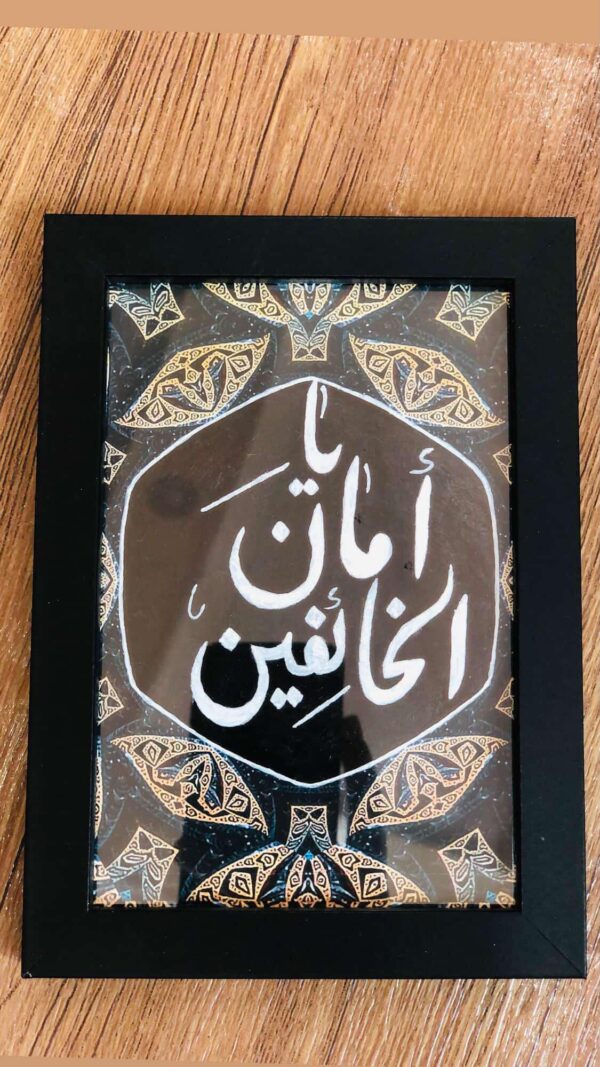 يا
أمان
الخائفين